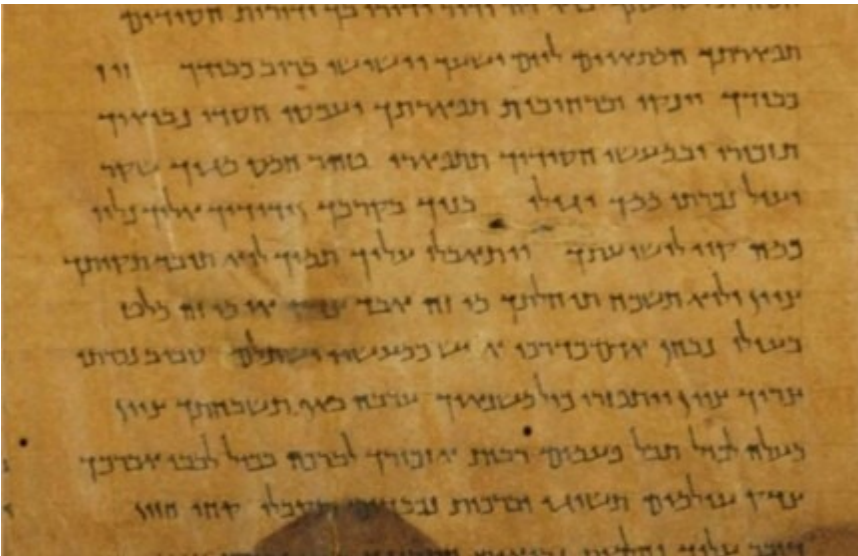 דור ודור ידורו בך ודורות חסידים
תפארתך המתאוים ליום ישעך וישישו ברוב כבודך זיז
כבודך יינקו וברחובות תפארתך יעכסו חסדי נביאיך
תזכורי ובמעשי חסידיך תתפארי טהר חמס מגוך שקר
ועול נכרתו ממך יגילו בניך בקרבך וידידיך אליך נלוו
כמה קוו לישועתך ויתאבלו עליך תמיך לוא תובד תקותך
ציון ולוא תשכח תוחלתך מי זה אבד צדק או מי זה מלט
בעולו נבחן אדם כדרכו איש כמעשיו ישתלם סביב נכרתו
צריך ציון ויתפזרו כול משנאיך ערבה באף תשבחתך ציון
מעלה לכול תבל פעמים רבות אזכורך לברכה בכול לבבי אברכך
צדק עולמים תשיגי וברכות נכבדים תקבלי קחי חזון